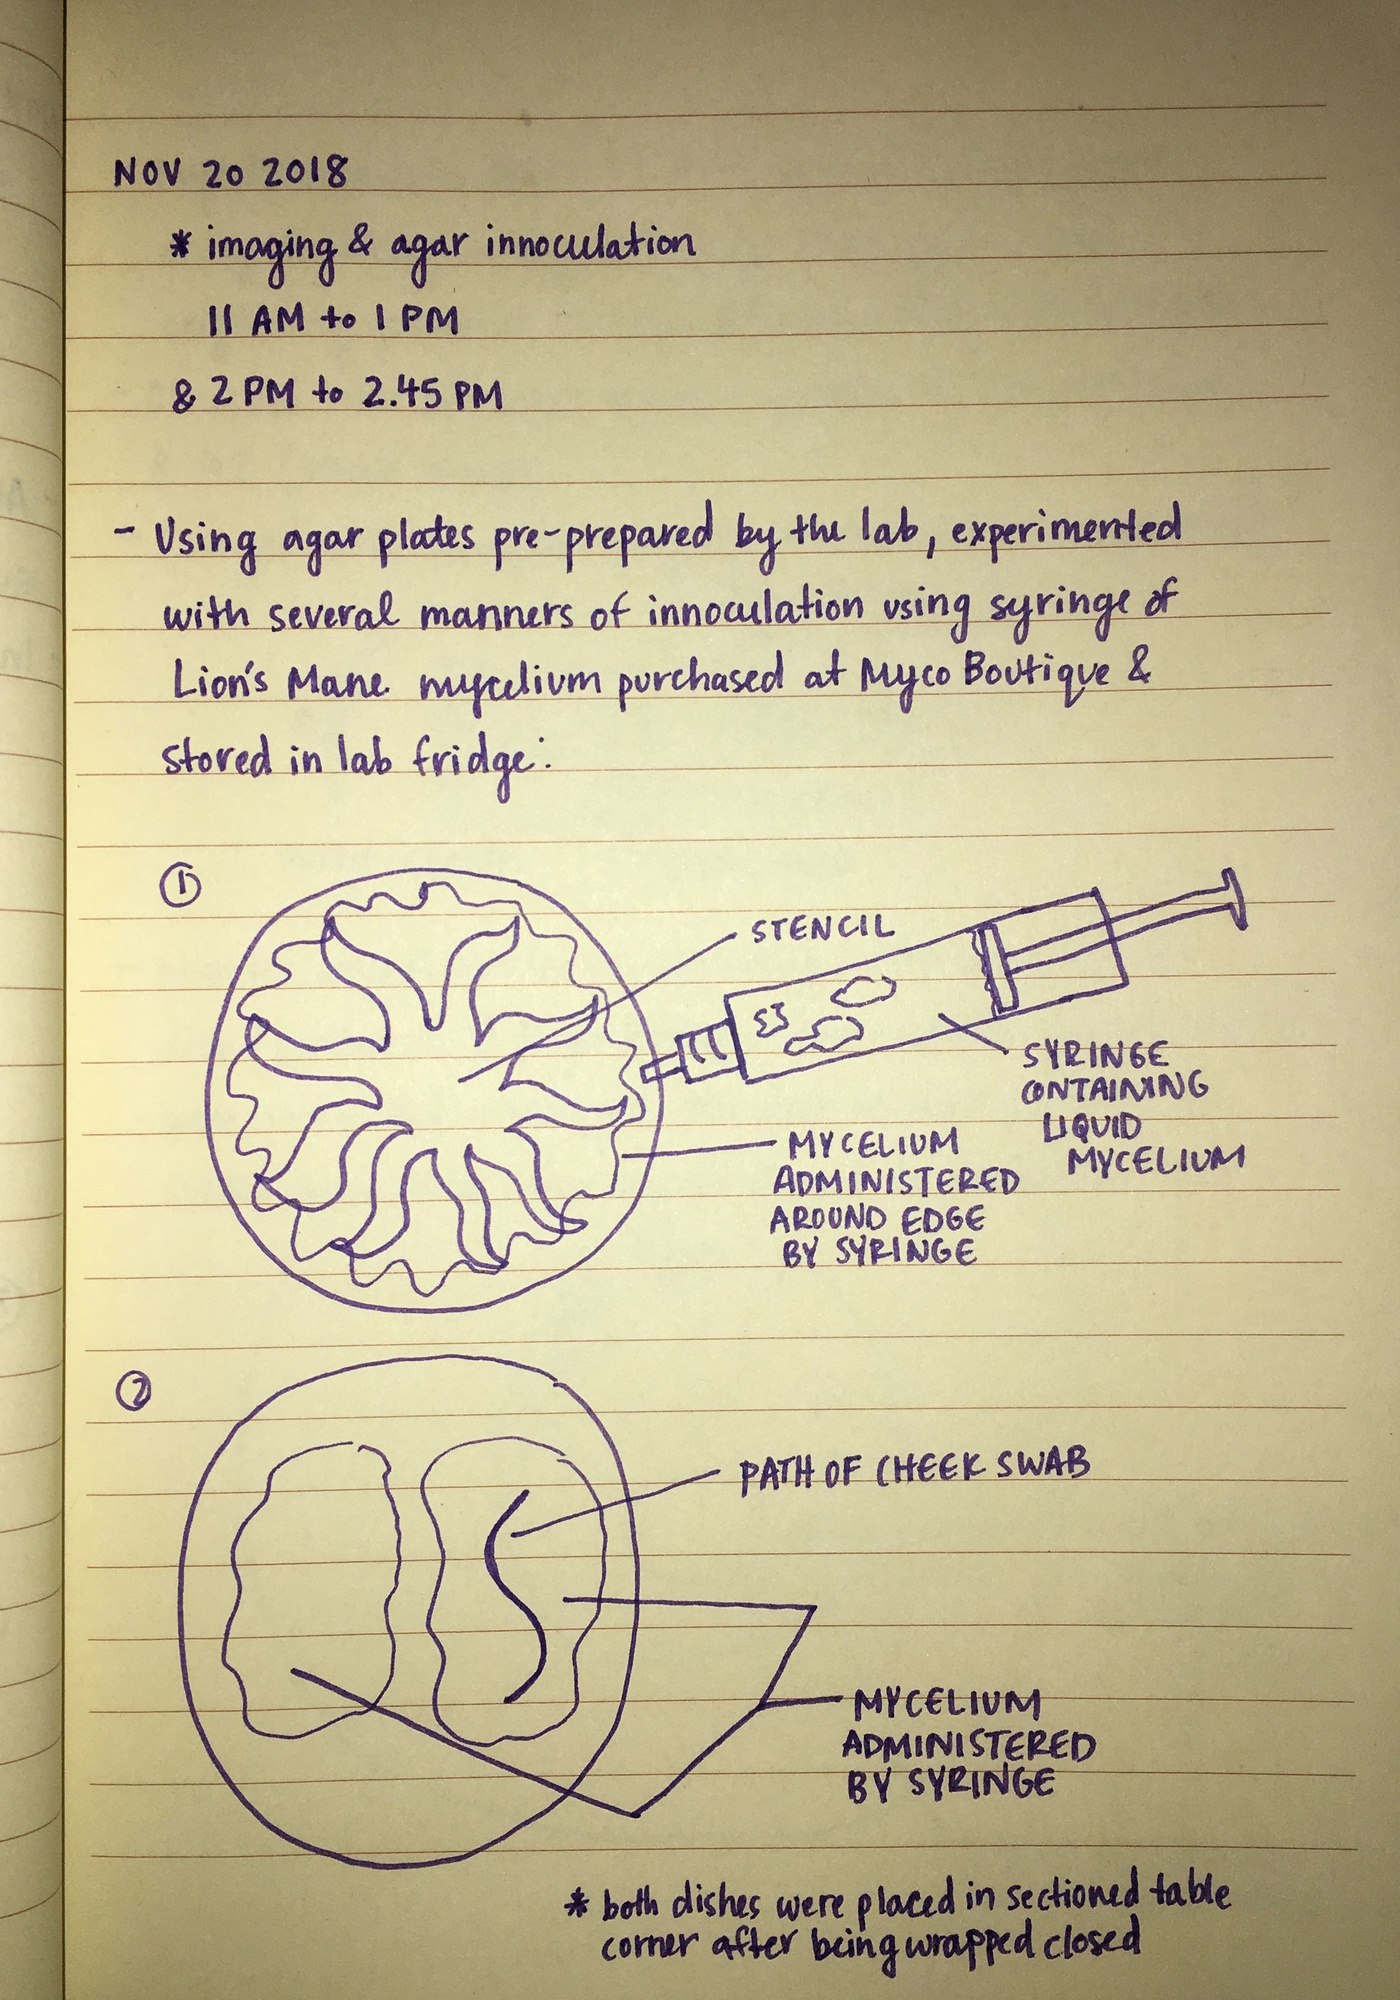 NOV 20 2018
* imaging & agar innoculation
11 AM to 1 PM
& 2 PM to 2.45 PM
- Using agar plates pre-prepared by the lab, experimented
with several manners of innoculation using syringe of
Lion's Mane mycelium purchased at Myco Boutique &
stored in lab fridge:
1
STENCIL
SYRINGE
CONTAINING
LIQUID
MYCELIUM
MYCELIUM
ADMINISTERED
AROUND EDGE
BY SYRINGE
2
PATH OF CHEEK SWAB
MYCELIUM
ADMINISTERED
BY SYRINGE
* both dishes were placed in sectioned table
corner after being wrapped closed